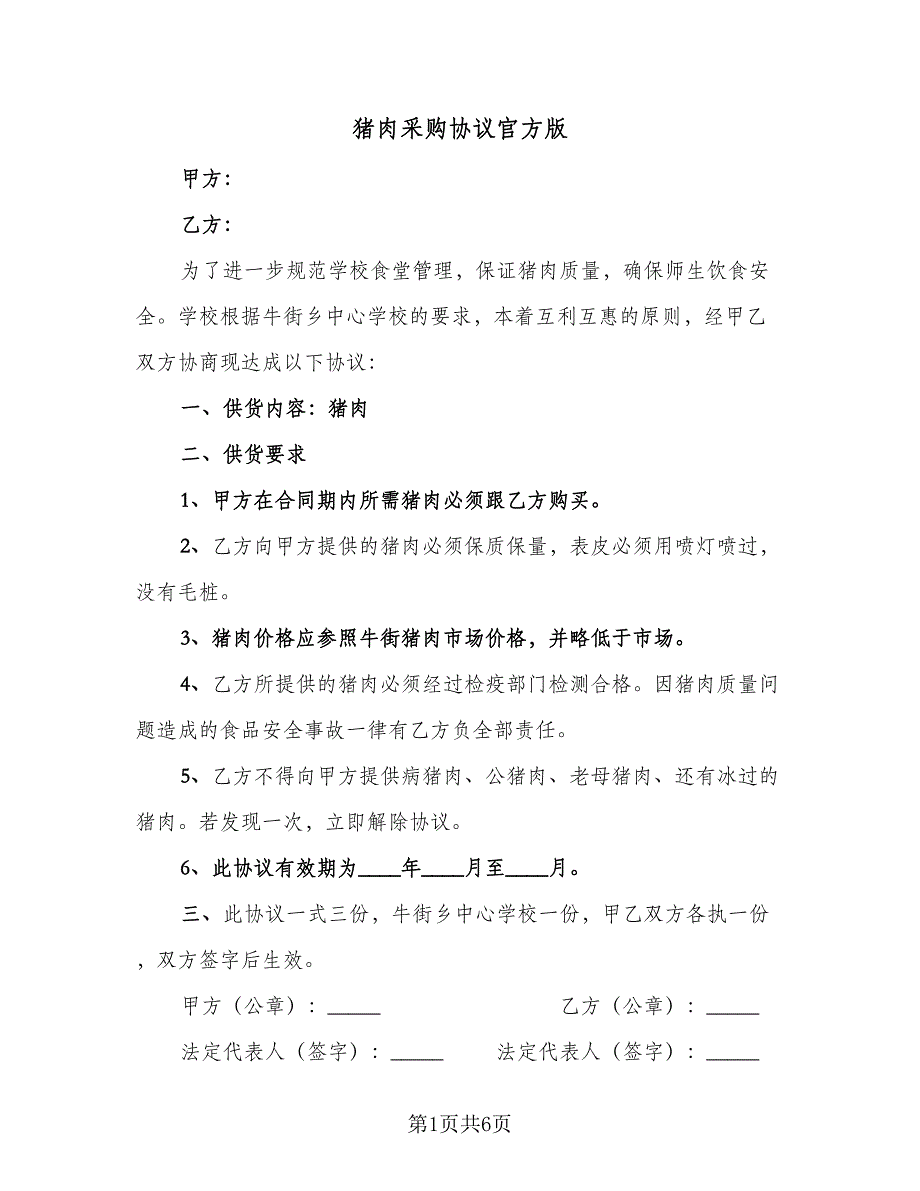 猪肉采购协议官方版
甲方：
乙方：
为了进一步规范学校食堂管理，保证猪肉质量，确保师生饮食安
全。学校根据牛街乡中心学校的要求，本着互利互惠的原则，经甲乙
双方协商现达成以下协议：
一、供货内容：猪肉
二、供货要求
1、甲方在合同期内所需猪肉必须跟乙方购买。
2、乙方向甲方提供的猪肉必须保质保量，表皮必须用喷灯喷过，
没有毛桩。
3、猪肉价格应参照牛街猪肉市场价格，并略低于市场。
4、乙方所提供的猪肉必须经过检疫部门检测合格。因猪肉质量问
题造成的食品安全事故一律有乙方负全部责任。
5、乙方不得向甲方提供病猪肉、公猪肉、老母猪肉、还有冰过的
猪肉。若发现一次，立即解除协议。
6、此协议有效期为____年____月至____月。
三、此协议一式三份，牛街乡中心学校一份，甲乙双方各执一份
，双方签字后生效。
甲方（公章）：_____ 乙方（公章）：_____
法定代表人（签字）：_____ 法定代表人（签字）：_____
第1页共6页